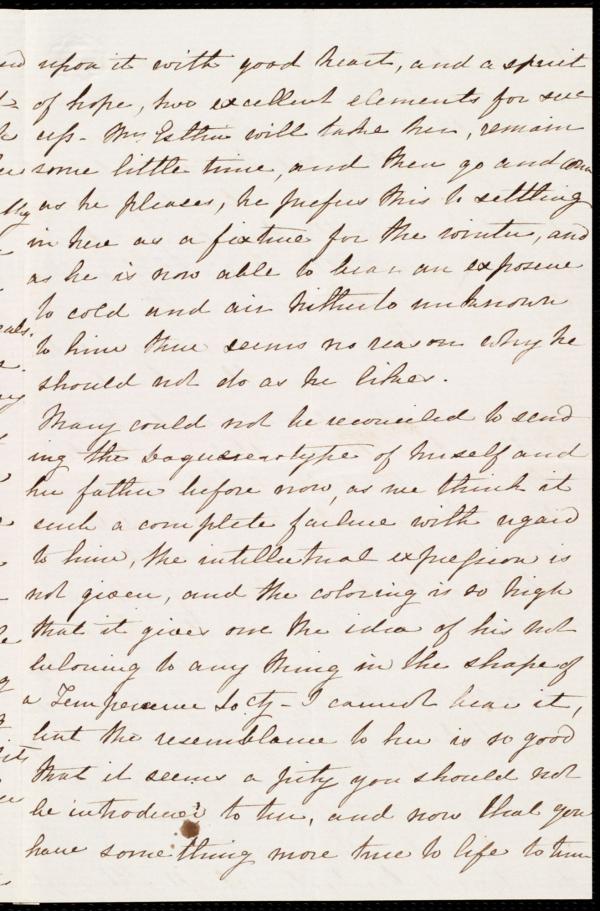 upon it with good heart, and a spirit
of hope, two excellent elements for suc
cess - Mr Estlin will take her, remain
some little time, and then go and come
as he pleases, he prefers this to settling
in here as a fixture for the winter, and
as he is now able to bear an exposure
to cold and air hitherto unknown
to him there seems no reason why he
should not do as he likes.
Mary could not be reconciled to send
ing the Daguereotype of herself and
her father before now, as we think it
such a complete failure with regard
to him, the intellectual expression is
not given, and the coloring is so high
that it gives one the idea of his not
belonging to any thing in the shape of
a Temperance Socty - I cannot bear it,
but the resemblance to her is so good
that it seems a pity you should not
be introduced to her, and now that you
have something more true to life to turn